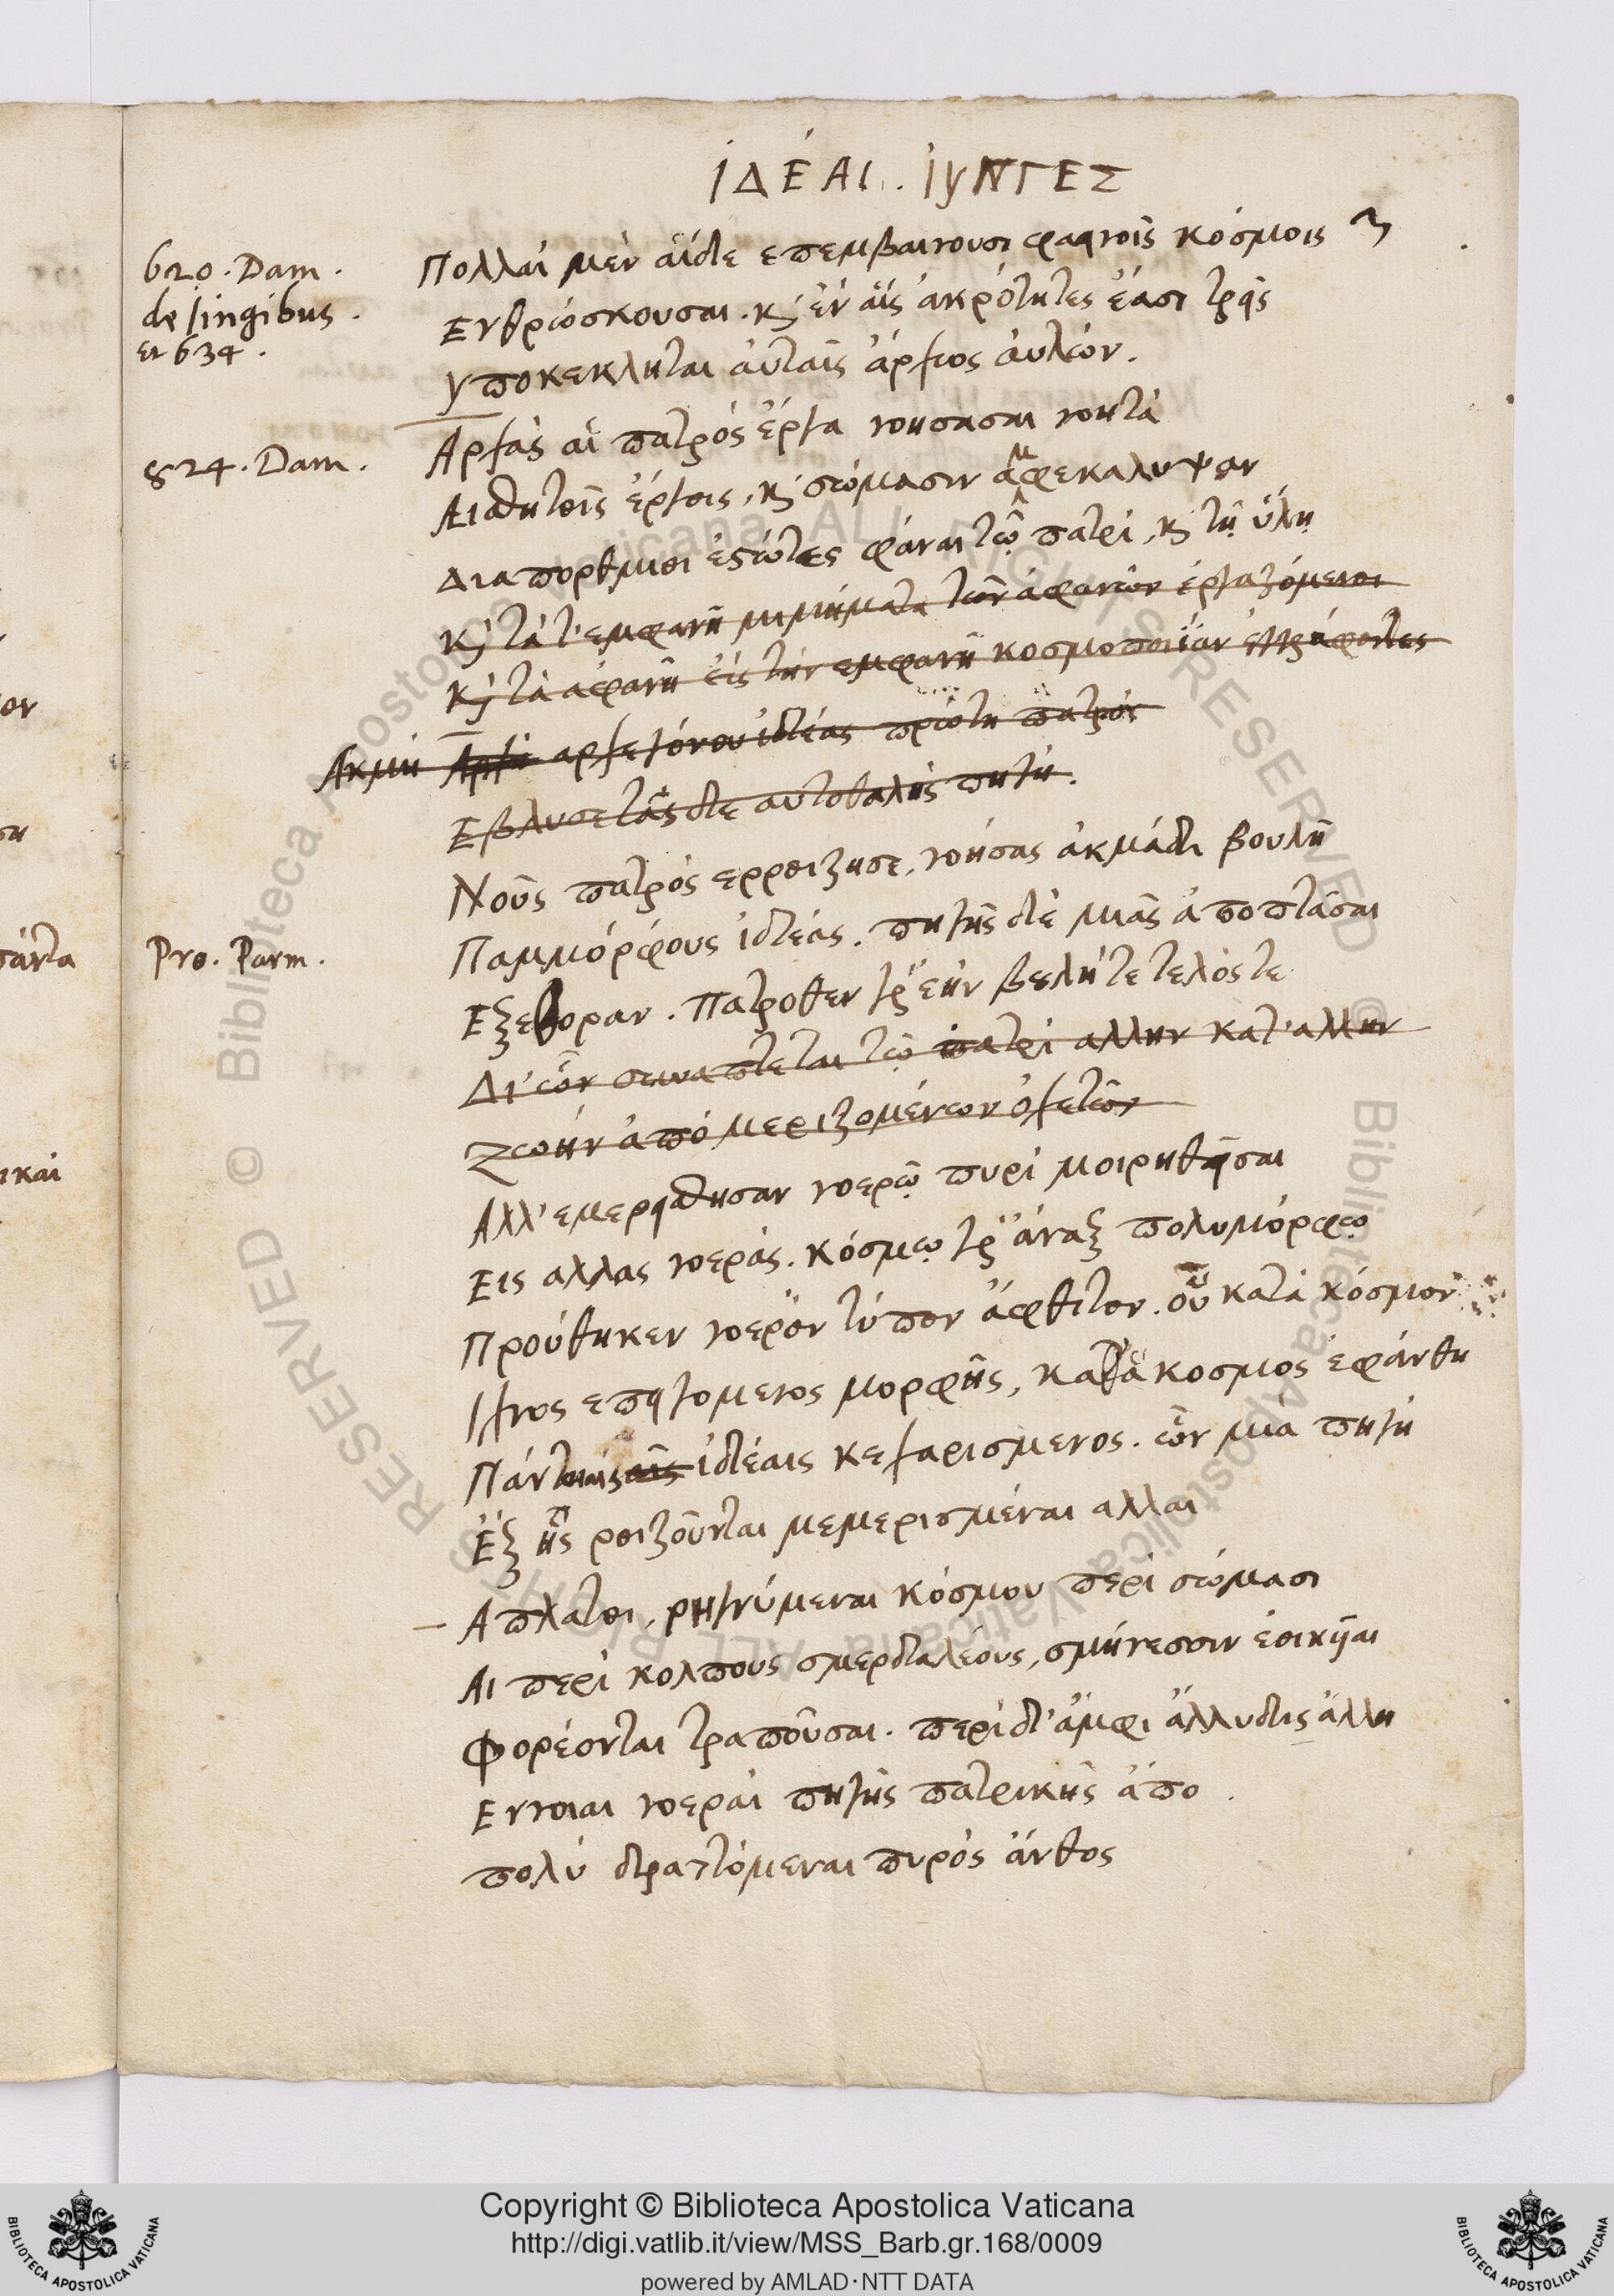 ἸΔΈΑΙ. ἸΥΝΓΕΣ
620. Dam.
de Iingibus.
et 634.
Πολλαὶ μὲν αἵδε επεμβαινουσι φαεινοῖς κόσμοις
Ενθρώσκουσαι. κ̀ ἐν αἷς ἀκρότητες ἔασι τρεῖς
Υποκεκλιται αὐταῖς ἀρχιος ἀυλών.
824. Dam.
Αρχὰς αἳ πατρὸς ἔργα νοησασαι νοητὰ
Αισθητοῖς ἔργοις, κ̀ σώμασιν ἀμφεκαλυψαν
Διαπορθμιοι ἑστῶτες φάναι τῷ πατρὶ, κ̀ τῇ ὕλῃ
κ̀ τὰ τ' εμφανῆ μιμήματα τῶν ἀφανῶν ἐργαζόμενοι
κ̀ τὰ ἀφανῆ εἰς τὴν εμφανῆ κοσμοποιΐαν ἐγγράφοντες
Ακμὴ Αρχὴ αρχεγόνου ἰδέας πρώτη πατρὸς
Εβλυσε τάς δε αυτοθαλὴς πηγή.
Νοῦς πατρὸς ερροιζησε, νοήσας ἀκμάδι βουλῇ
Pro. Parm.
Παμμόρφους ἰδέας. πηγῆς δὲ μιᾶς ἀποπτᾶσαι
Εξεθοραν. Πατροθεν γὰρ ἔην βουλή τε τελός τε
Δι' ὧν συναπτεται τῷ πατρὶ αλλην κατ' αλλην
Ζωὴν ἀπὸ μεριζομένων ὀχετῶν
Αλλ' εμερισθησαν νοερῷ πυρὶ μοιρηθεῖσαι
Εις αλλας νοεράς. κόσμῳ γὰρ ἄναξ πολυμόρφῳ
Προύθηκεν νοερὸν τύπον ἄφθιτον. οὗ κατὰ κόσμον
Ιχνος επειγομενος μορφῆς, κατὰ κοσμος ἐφάνθη
Παντοίαις ἰδέαις κεχαρισμενος. ὧν μία πηγὴ
Ἐξ ἧς ροιζοῦνται μεμερισμέναι αλλαι
Απλατοι, ρηγνύμεναι κόσμου περὶ σώμασι
Αι περὶ κολπους σμερδαλέους, σμήνεσσιν ἐοικυῖαι
Φορέονται τραποῦσαι. περὶ δ' ἀμφὶ ἄλλυδις ἄλλη
Εννοιαι νοεραὶ πηγῆς πατρικῆς ἄπο
πολὺ δραττόμεναι πυρὸς ἄνθος
ος
πάντα
ικαὶ
Copyright © Biblioteca Apostolica Vaticana
http://digi.vatlib.it/view/MSS_Barb.gr.168/0009
powered by AMLAD·NTT DATA
BIBLIOTECA APOSTOLICA VATICANA
BIBLIOTECA APOSTOLICA VATICANA
© Biblioteca Apostolica Vaticana ALL RIGHTS RESERVED